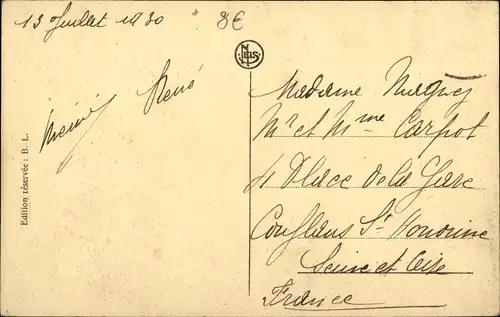 13 Juillet 1930
8€
NELS
René
Edition réservée : B. L.
Madame
Mr et Mme Carpot
4 Place de la Gare
Conflans St Honorine
Seine et Oise
France